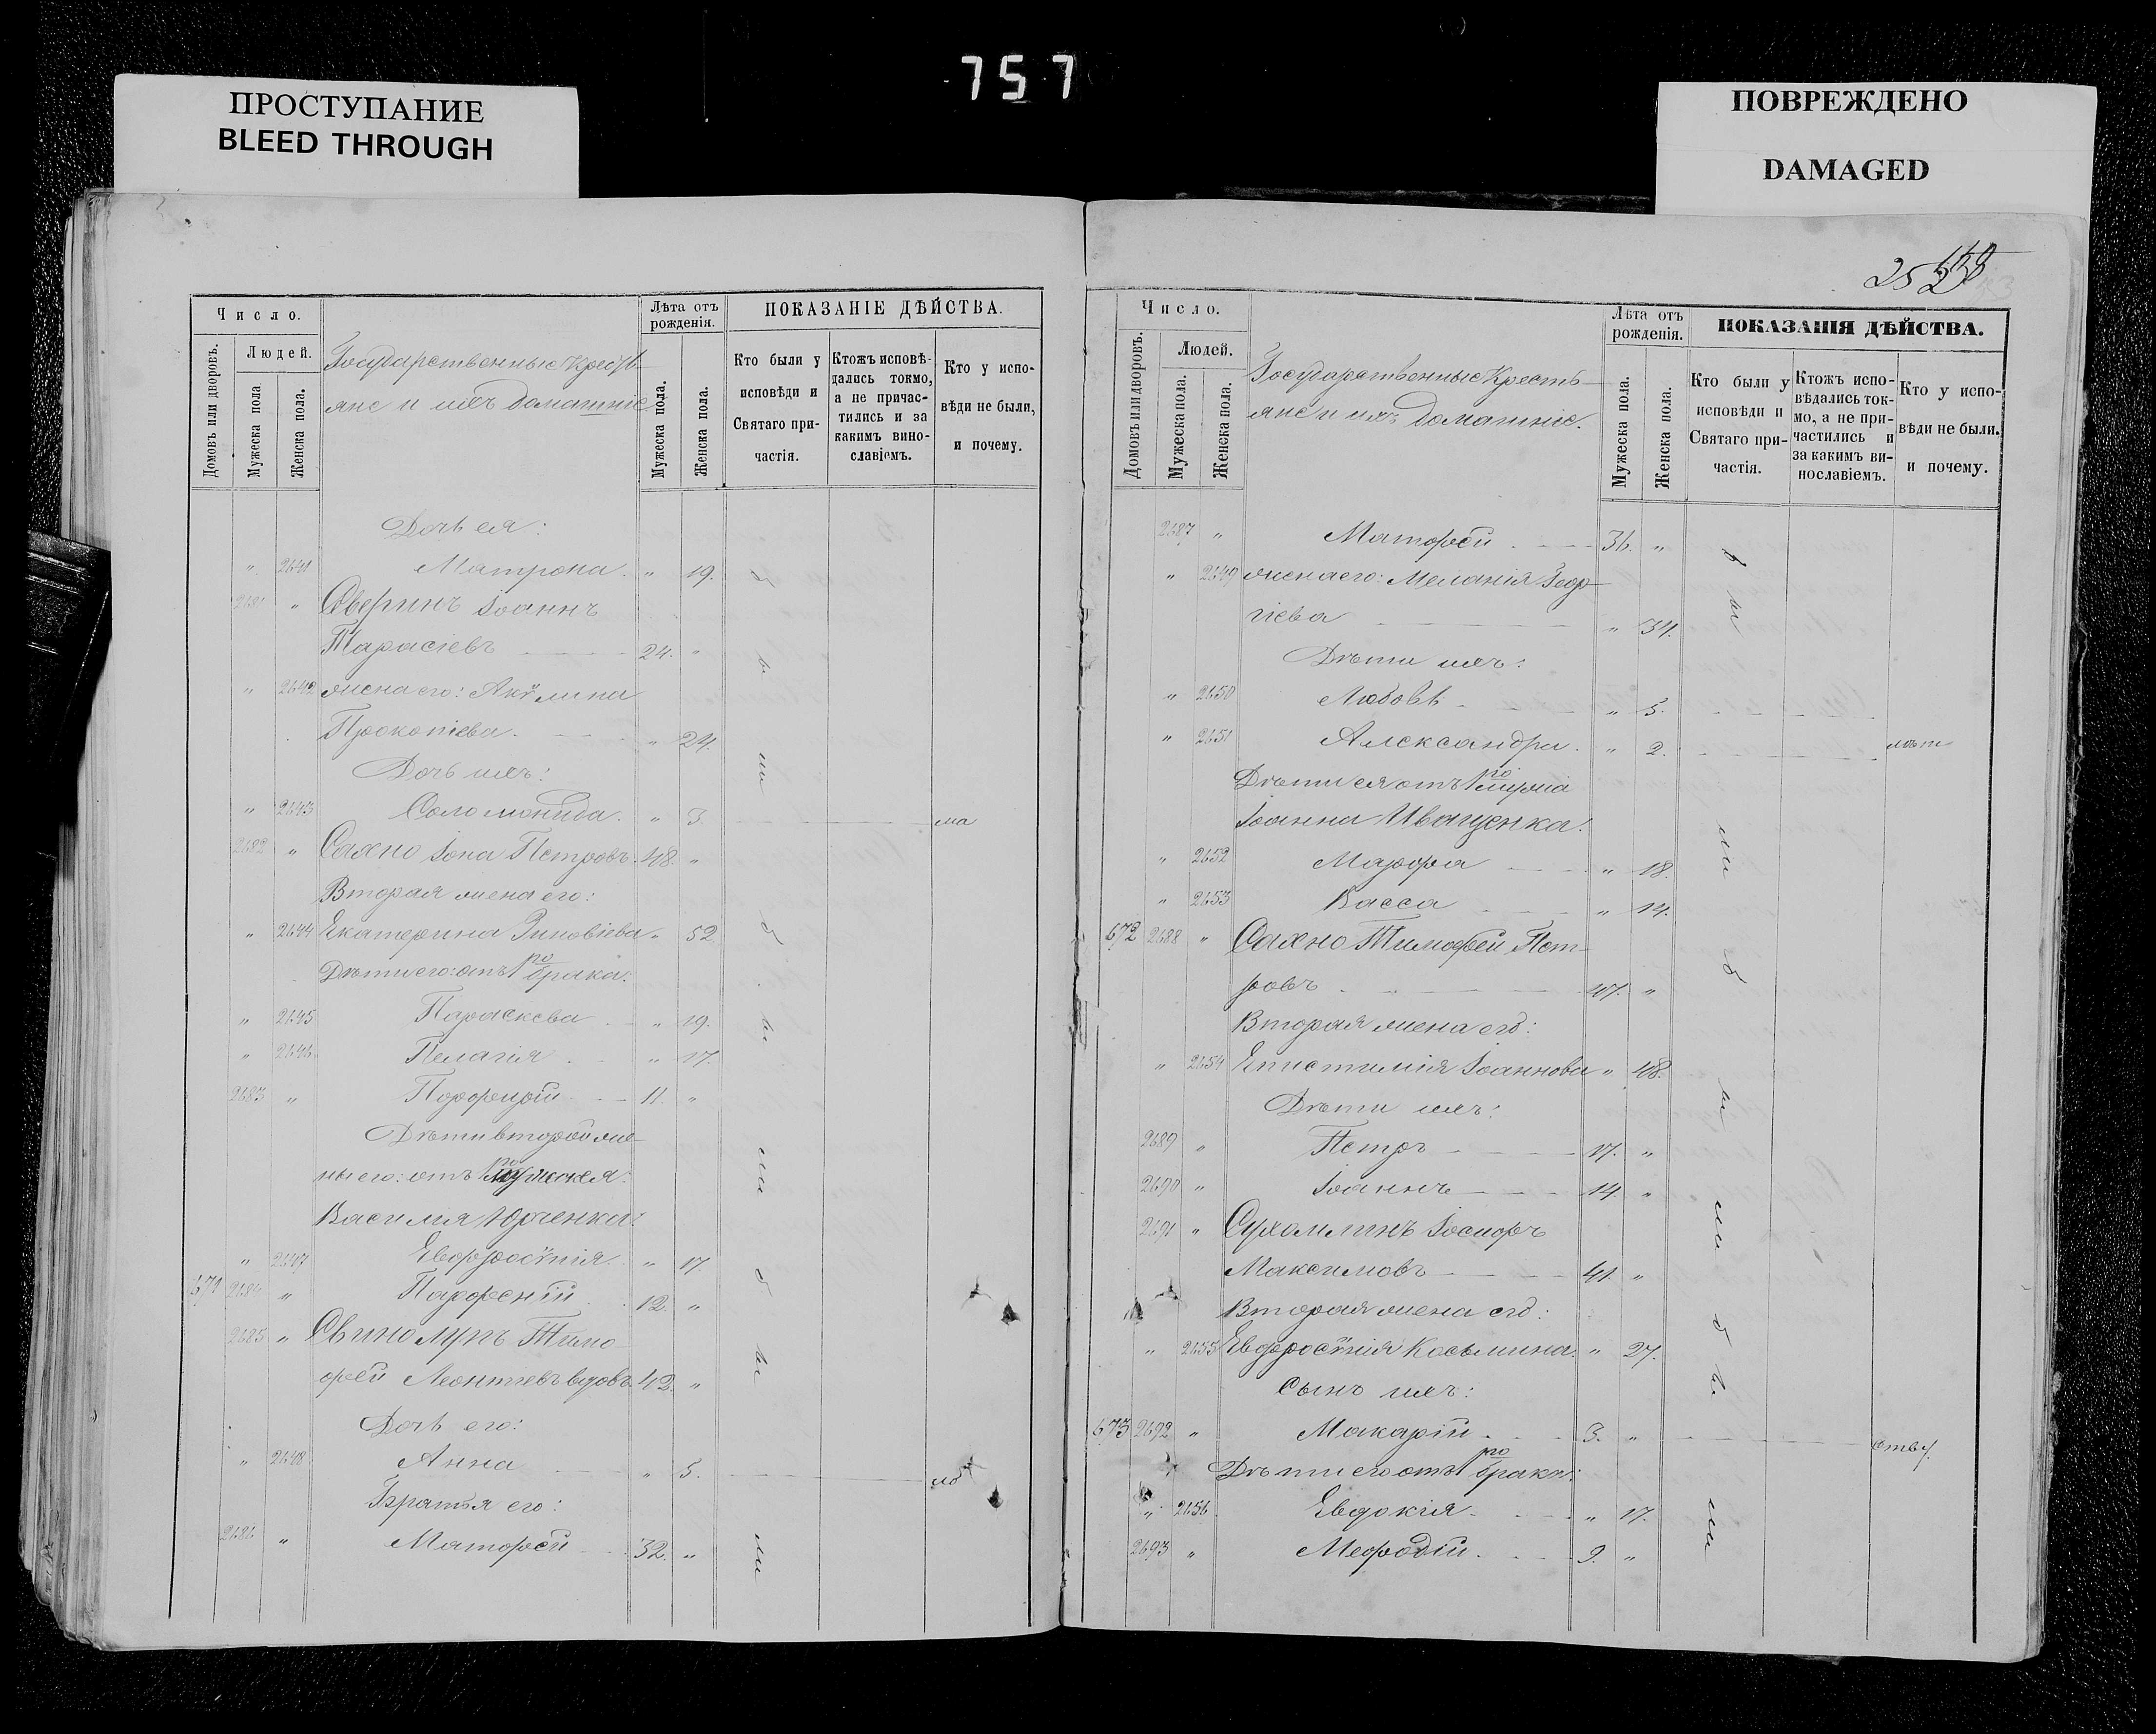 757
ПРОСТУПАНИЕ
BLEED THROUGH
ПОВРЕЖДЕНО
DAMAGED
Число.
Людей.
Домовъ или дворовъ.
Мужеска пола
Женска пола.
Государственные Кресть-
яне и ихъ домашніе
Лѣта отъ рожденія.
Мужеска пола.
Женска пола.
ПОКАЗАНІЕ ДѢЙСТВА.
Кто были у исповѣди и Святаго при-частія.
Ктожъ исповѣ-дались токмо, а не причас-тились и за какимъ вино-славіемъ.
Кто у испо-вѣди не были, и почему.
Дочь ея:
" 2641 Матрона " 19.
2681 " Сверинъ Іоаннъ
Тарасіевъ 24. "
" 2642 жена его: Акѵлина
Прокопіева. " 24.
Дочь ихъ:
" 2643 Соломонида. " 3. ма
2682 " Сахно Іона Петровъ. 48. "
Вторая жена его:
" 2644 Екатерина Зиновіева " 52
Дѣти его: отъ 1го брака:
" 2645 Параскева " 19.
" 2646 Пелагія " 17.
2683 " Порфирій 11. "
Дѣти второй же-
ны его: отъ 1го мужа ея
Василія Юрченка:
" 2647 Евфросинія " 17.
671 2684 " Парфеній 12. "
2685 " Свинолупъ Тимо-
фей Леонтіевъ вдовъ. 42. "
Дочь его:
" 2648 Анна " 5.
Братья его:
2686 " Матфей 32. "
252
Число.
Людей.
Домовъ или дворовъ.
Мужеска пола.
Женска пола.
Государственные Кресть-
яне и ихъ домашніе.
Лѣта отъ рожденія.
Мужеска пола.
Женска пола.
ПОКАЗАНІЯ ДѢЙСТВА.
Кто были у исповѣди и Святаго при-частія.
Ктожъ испо-вѣдались ток-мо, а не при-частились и за какимъ ви-нославіемъ.
Кто у испо-вѣди не были. и почему.
2687 " Матфей 36. "
" 2649 жена его: Меланія Геор-
гіева " 34.
Дѣти ихъ:
" 2650 Любовь " 5.
" 2651 Александра. " 2.
Дѣти ея отъ 1го мужа
Іоанна Иващенка:
" 2652 Марфа " 18.
" 2653 Васса " 14.
672 2688 " Сахно Тимофей Пет-
ровъ 47. "
Вторая жена его:
" 2654 Епистимія Іоаннова " 48.
Дѣти ихъ:
2689 " Петръ 17. "
2690 " Іоаннъ 14. "
2691 " Сухомлинъ Іосифъ
Максимовъ 41. "
Вторая жена его:
" 2655 Евфросинія Косьмина. " 27.
Сынъ ихъ:
673 2692 " Макарій 3. "
Дѣти его отъ 1го брака:
" 2656 Евдокія " 17.
2693 " Мефодій 9. "